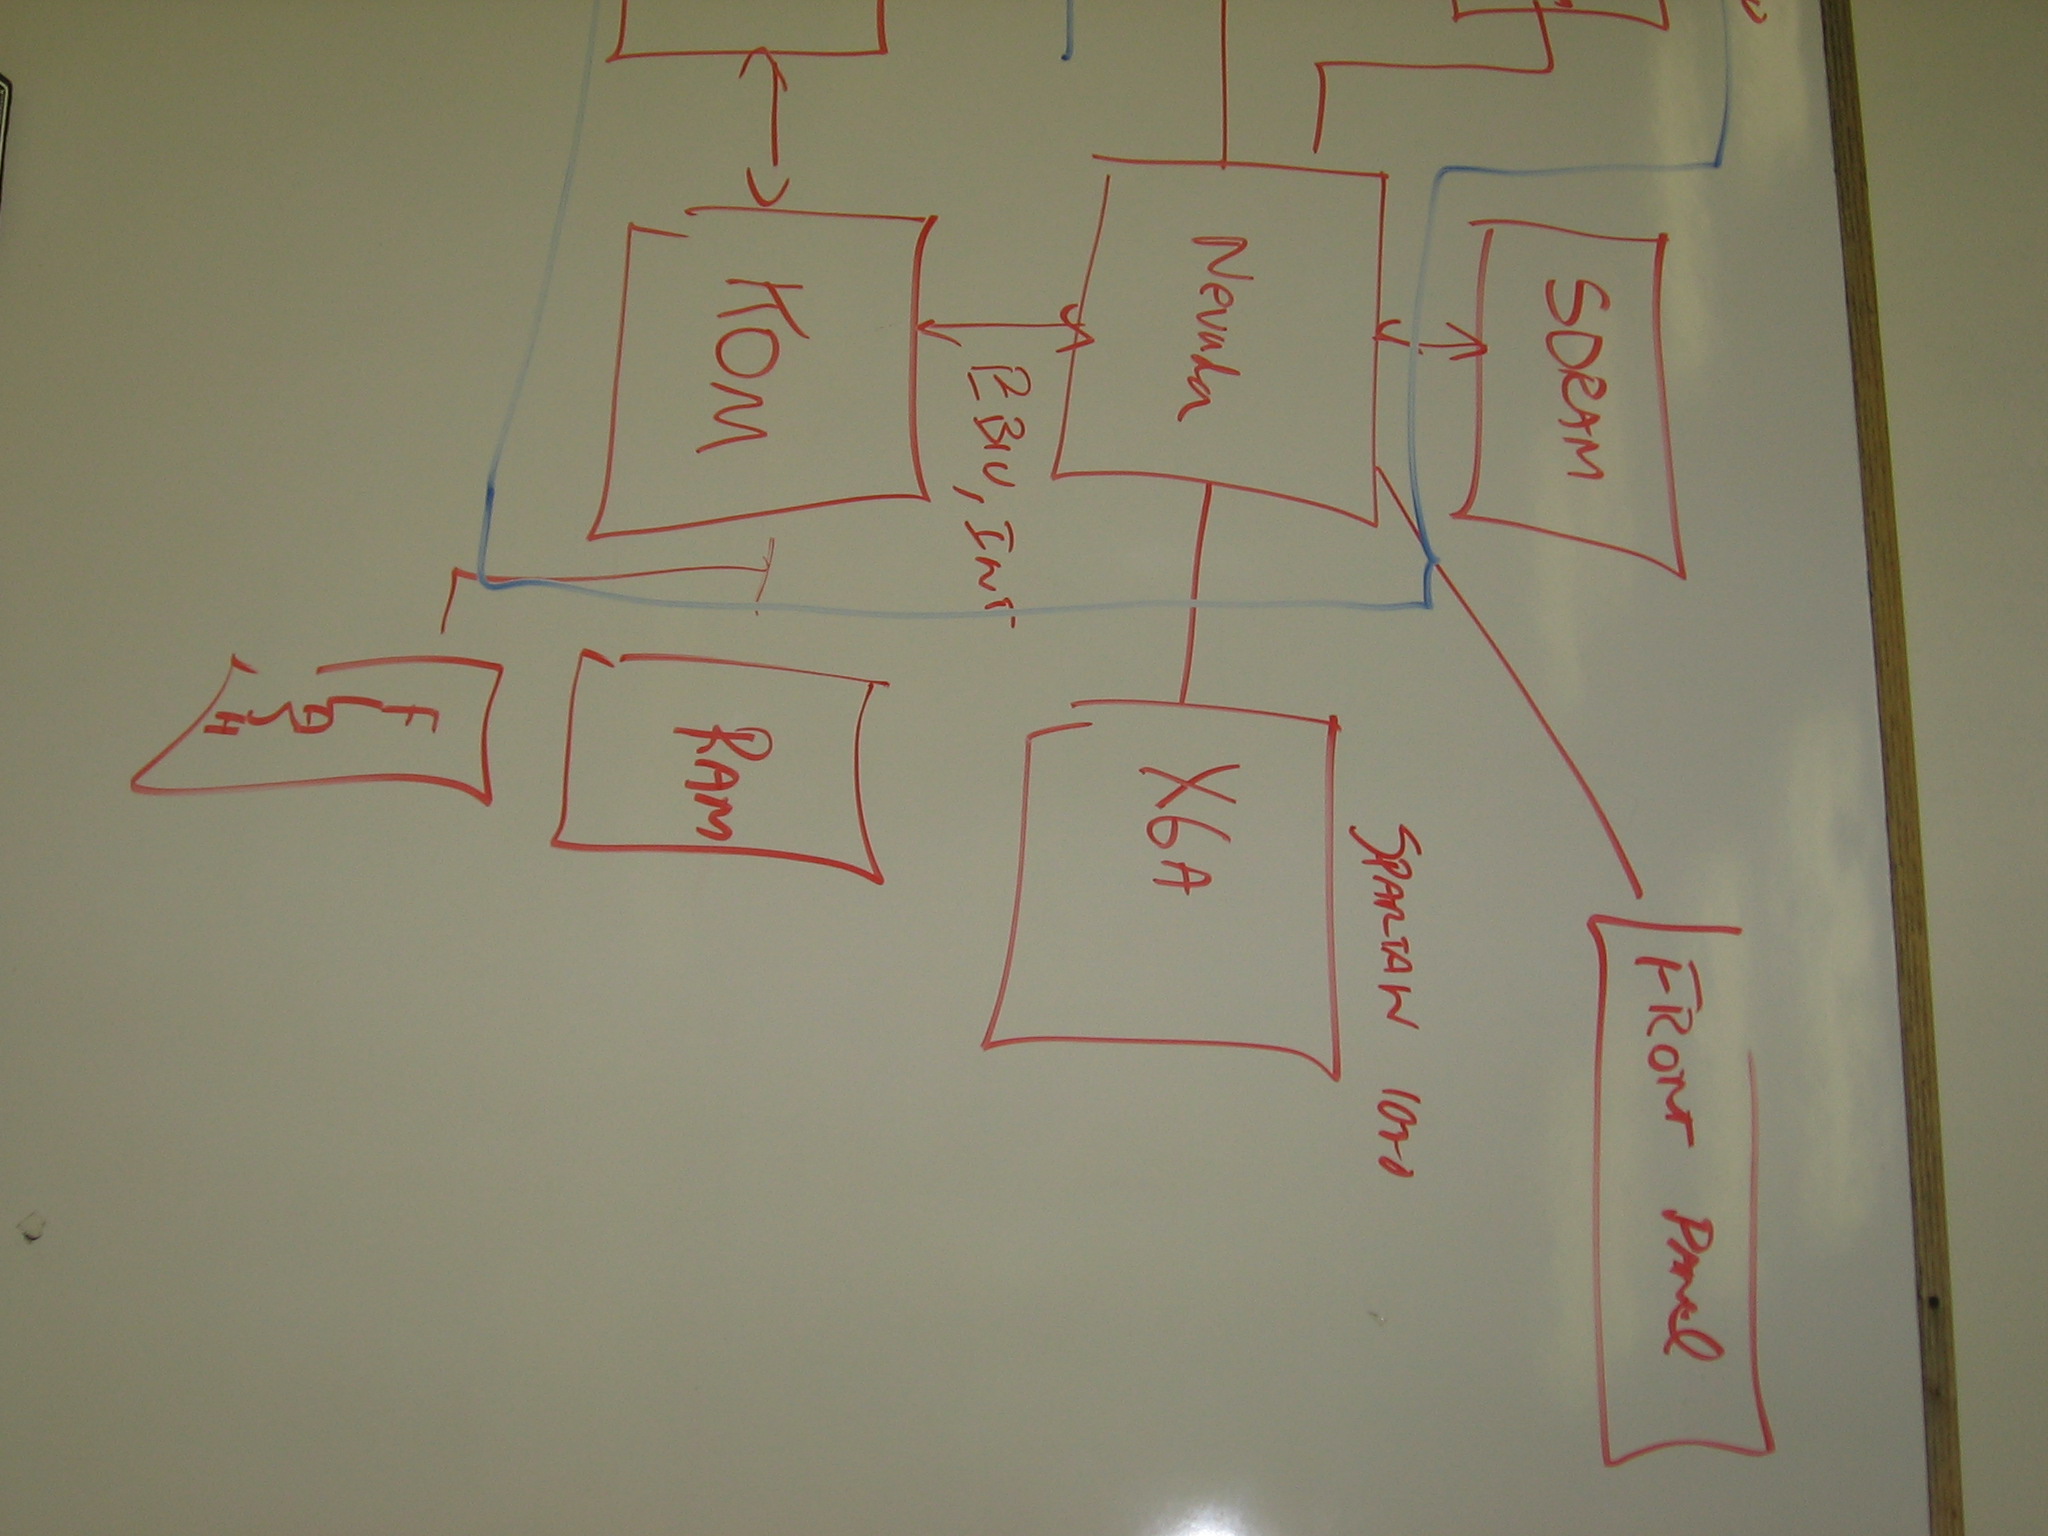 FRONT PANEL
SDRAM
SPARTAN
Nevada
X6A
EBIU, INT
KOM
RAM
FLASH